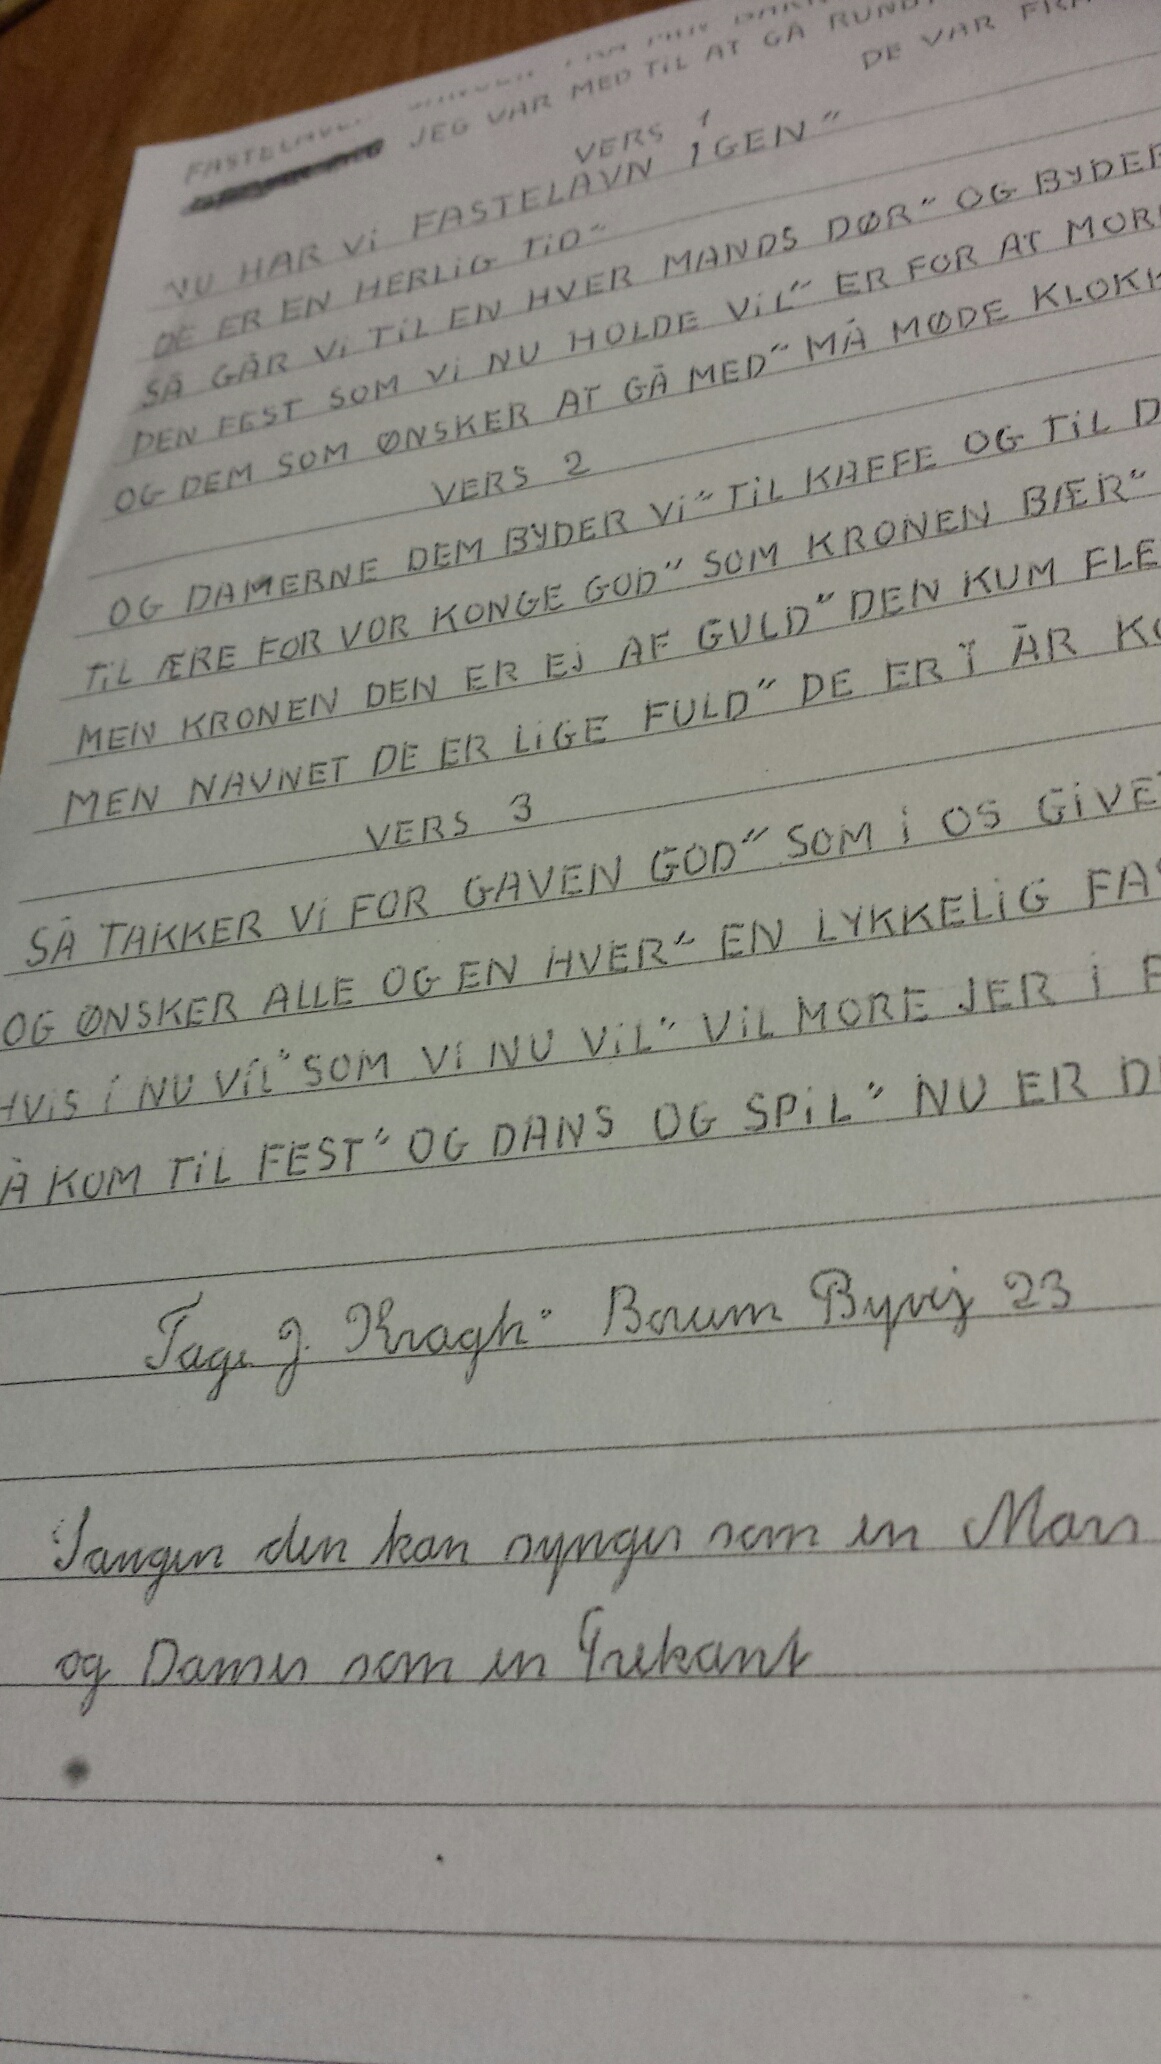 JEG VAR MED TIL AT GÅ RUND
DE VAR
VERS 1
NU HAR Vi FASTELAVN IGEN"
DE ER EN HERLIG TID"
SÅ GÅR Vi TIL EN HVER MANDS DØR" OG BYDER
DEN FEST SOM Vi NU HOLDE ViL" ER FOR AT MOR
OG DEM SOM ØNSKER AT GÅ MED" MÅ MØDE KLOKK
VERS 2
OG DAMERNE DEM BYDER Vi" TiL KAFFE OG TiL D
TiL ÆRE FOR VOR KONGE GOD" SOM KRONEN BÆR"
MEN KRONEN DEN ER Ej AF GULD" DEN KUM FLE
MEN NAVNET DE ER LiGE FULD" DE ER I ÅR KO
VERS 3
SÅ TAKKER Vi FOR GAVEN GOD" SOM i OS GiVET
OG ØNSKER ALLE OG EN HVER" EN LYKKELiG FA
HVIS i NU ViL" SOM Vi NU ViL" ViL MORE JER i
Å KOM TiL FEST" OG DANS OG SPiL" NU ER D
Tage J. Kragh" Borum Byvej 23
Sangen den kan synges som en Mars
og Danses som en Trekant